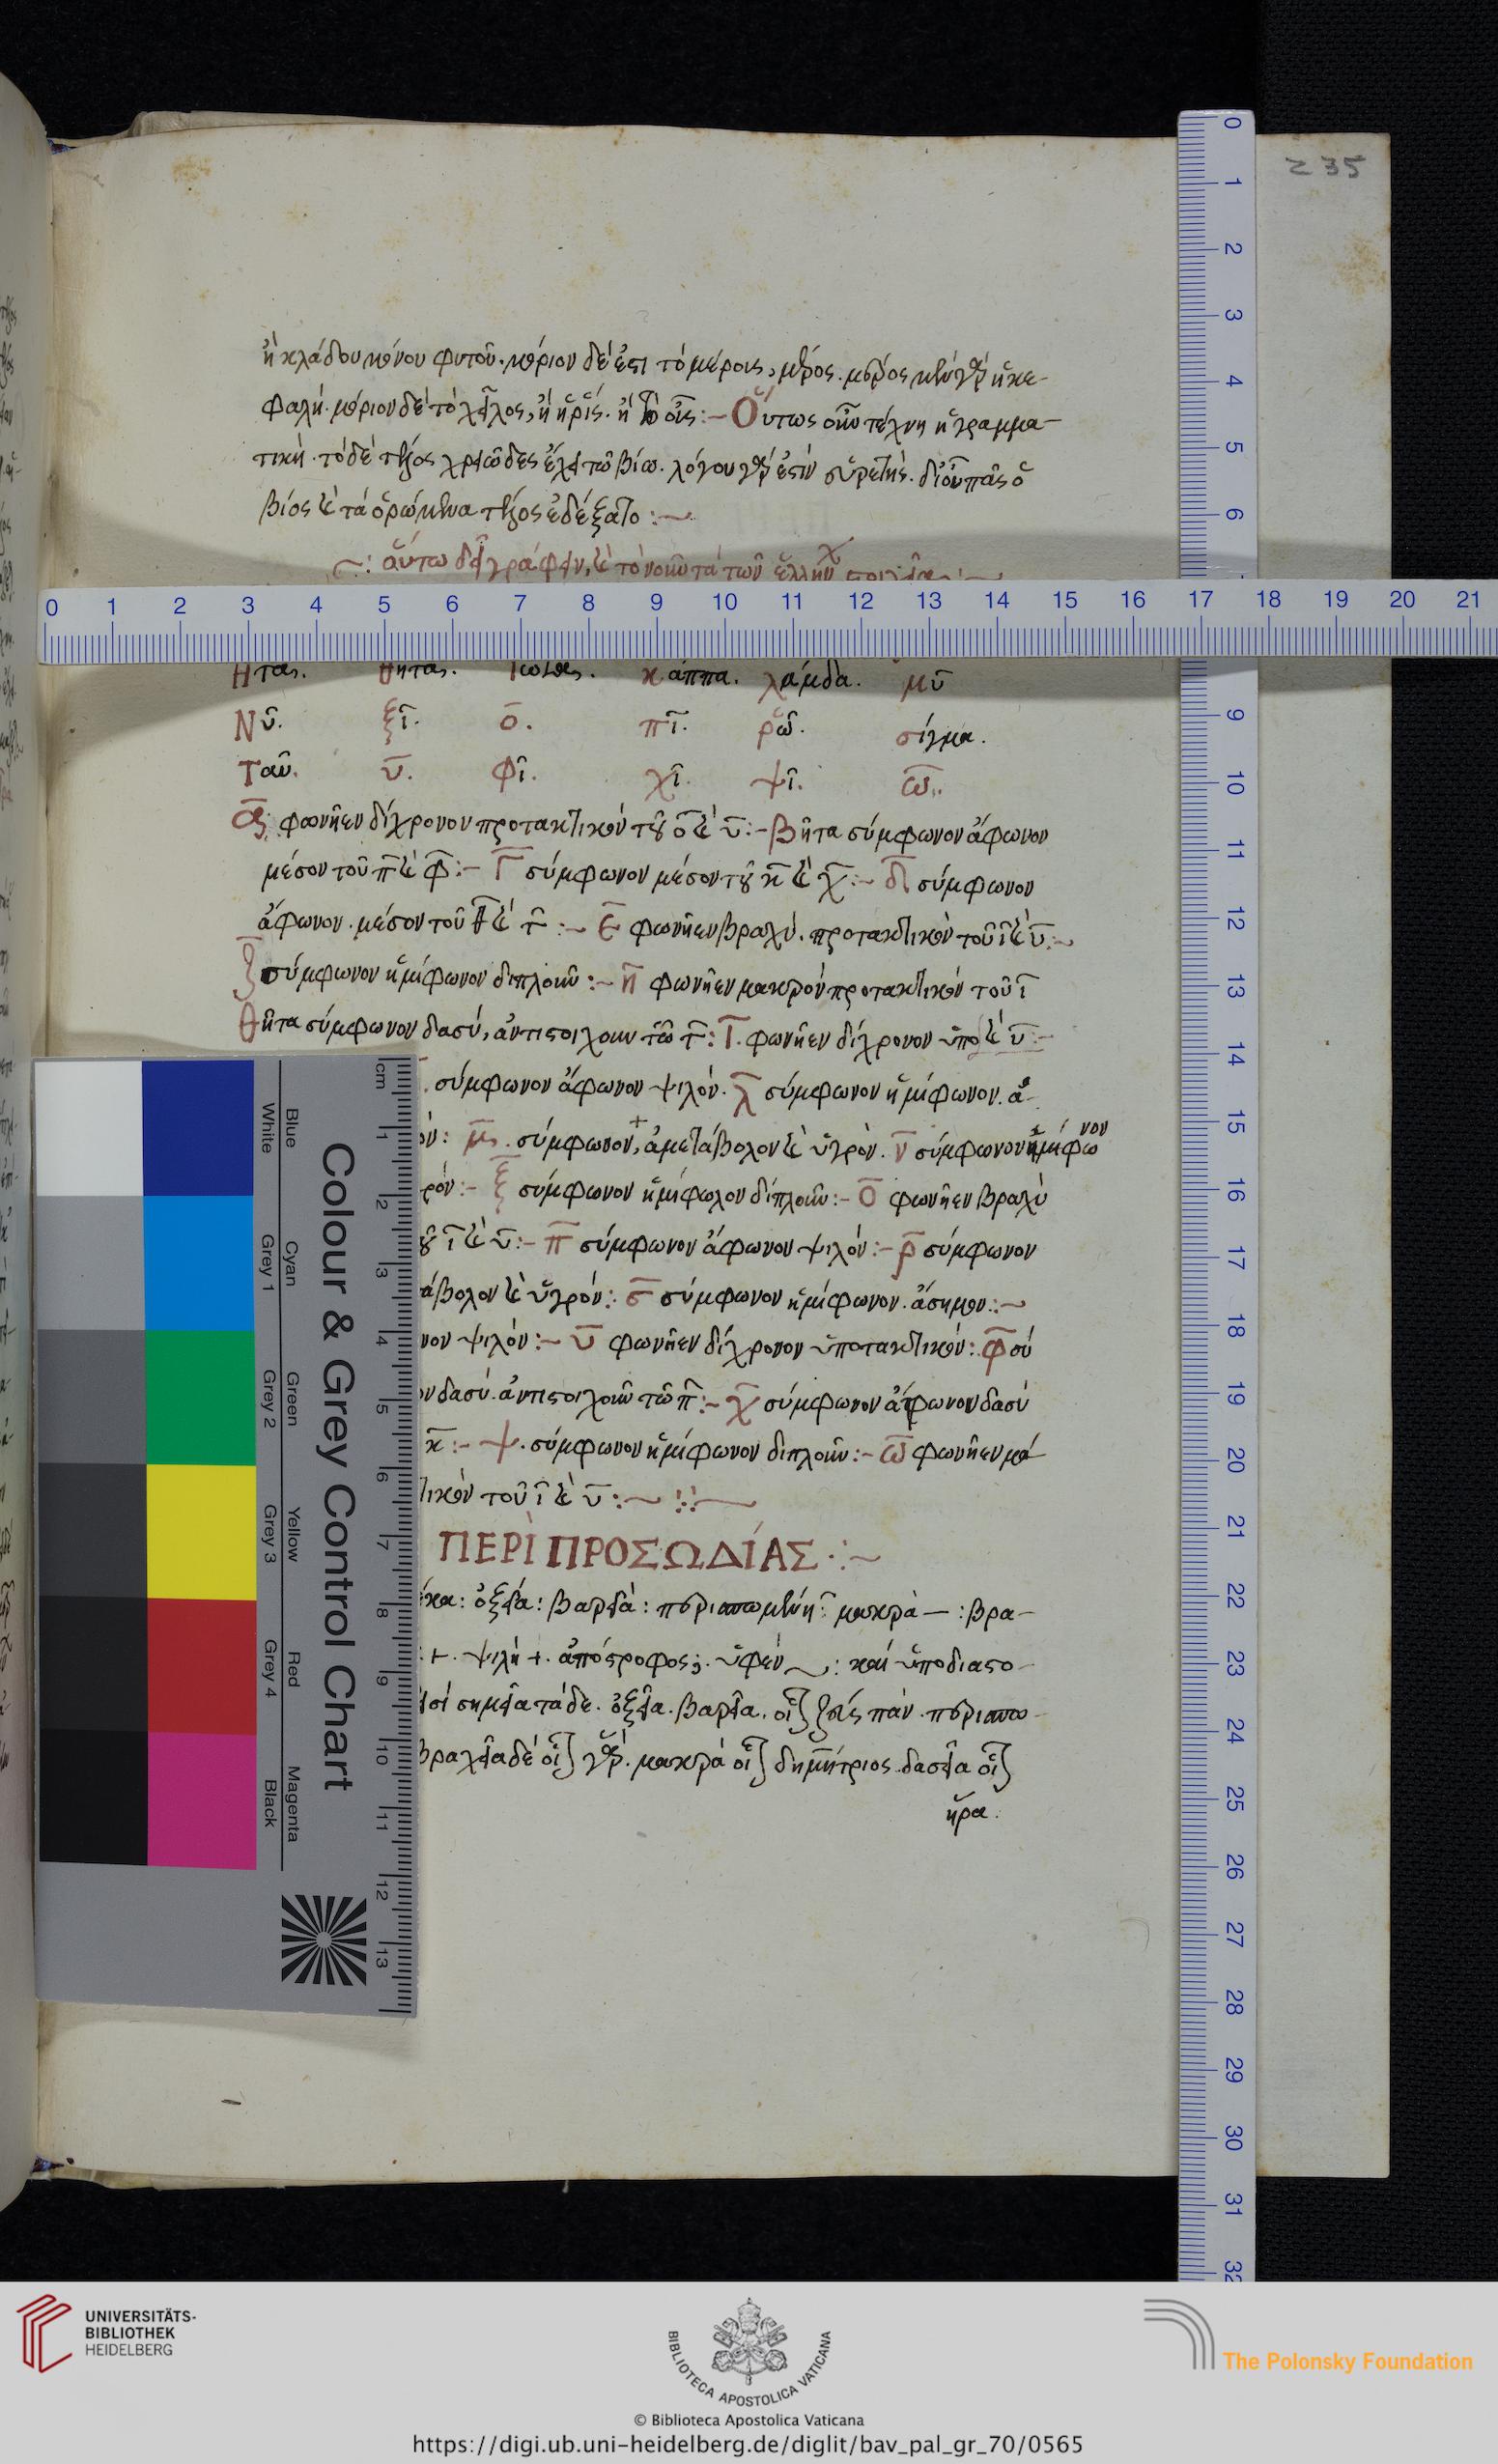 235
ἢ κλάδου μόνου φυτοῦ. μόριον δέ ἐστι τὸ μέρους, μέρος. μέρος μὲν γὰρ ἡ κε-
φαλή. μόριον δὲ τὸ χεῖλος, ἢ ἡ ῥίς. ἢ τὸ οὖς :- Οὕτως οὖν τέχνη ἡ γραμμα-
τική. τὸ δὲ τέλος χρειῶδες ἔχει τῶ βίω. λόγου γάρ ἐστιν εὑρετής. διὸ πᾶς ὁ
βίος καὶ τὰ ὁρώμενα τέλος ἐδέξατο :~
οὕτω δεῖ γράφειν, καὶ τὰ τῶν ἑλλήν
Ητας. θητας. Ιωτας. κάππα. λάμδα. μῦ
Νῦ. ξῖ. ο. πῖ. ῥῶ. σίγμα.
Ταῦ. υ. Φῖ. χῖ. ψῖ. ω..
φωνῆεν δίχρονον προτακτικόν τοῦ ο καὶ υ :- Βῆτα σύμφωνον ἄφωνον
μέσον τοῦ π καὶ φ :- Γ σύμφωνον μέσον τοῦ κ καὶ χ :~ δ σύμφωνον
ἄφωνον. μέσον τοῦ θ καὶ τ :~ ε φωνῆεν βραχύ. προτακτικὸν τοῦ ι καὶ υ :~
ζ σύμφωνον ἡμίφωνον διπλοῦν :~ η φωνῆεν μακρόν προτακτικόν τοῦ ι
θῆτα σύμφωνον δασύ, ἀντιστοιχουν τῶ τ : ι. φωνῆεν δίχρονον ὑπο καὶ υ :~
σύμφωνον ἄφωνον ψιλόν. λ σύμφωνον ἡμίφωνον. ἀ-
όν: μ. σύμφωνον, ἀμετάβολον καὶ ὑγρόν. ν σύμφωνον ἡμίφωνον
ρόν :- ξ σύμφωνον ἡμίφωλον διπλοῦν :- ο φωνῆεν βραχὺ
ι καὶ υ :- π σύμφωνον ἄφωνον ψιλόν :- ρ σύμφωνον
άβολον καὶ ὑγρόν : σ σύμφωνον ἡμίφωνον. ἄσημον :~
νον ψιλόν :~ υ φωνῆεν δίχρονον ὑποτακτικόν : φ σύ
ν δασύ. ἀντιστοιχοῦν τῶ π :- χ σύμφωνον ἄφωνον δασύ
κ :- ψ. σύμφωνον ἡμίφωνον διπλοῦν :- ω φωνῆεν μα
τικόν τοῦ ι καὶ υ :~
ΠΕΡῚ ΠΡΟΣΩΔΊΑΣ :~
κα : ὀξεῖα : βαρεῖα : περισπωμένη : μακρὰ — : βρα-
ψιλή. ἀπόστροφος. ὑφέν : καὶ ὑποδιαστο-
σί σημεῖα τάδε. ὀξεῖα. βαρεῖα. οἷον ζεύς πάν. περισπω-
βραχεῖα δέ οἷον γάρ. μακρὰ οἷον δημήτριος. δασεῖα οἷον
ἥρα.
0 1 2 3 4 5 6 7 8 9 10 11 12 13 14 15 16 17 18 19 20 21
0
1
2
3
4
5
6
9
10
11
12
13
14
15
16
17
18
19
20
21
22
23
24
25
26
27
28
29
30
31
32
Colour & Grey Control Chart
Blue Cyan Green Yellow Red Magenta
White Grey 1 Grey 2 Grey 3 Grey 4 Black
cm 1 2 3 4 5 6 7 8 9 10 11 12 13
UNIVERSITÄTS-
BIBLIOTHEK
HEIDELBERG
BIBLIOTECA APOSTOLICA VATICANA
The Polonsky Foundation
© Biblioteca Apostolica Vaticana
https://digi.ub.uni-heidelberg.de/diglit/bav_pal_gr_70/0565